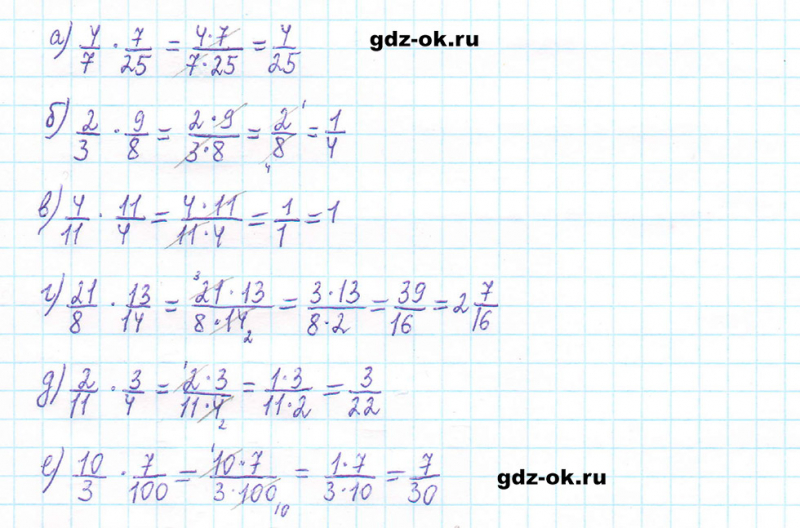 а) 4/7 · 7/25 = 4·7/7·25 = 4/25 gdz-ok.ru
б) 2/3 · 9/8 = 2·9/3·8 = 2/8 = 1/4
в) 4/11 · 11/4 = 4·11/11·4 = 1/1 = 1
г) 21/8 · 13/14 = 21·13/8·14 = 3·13/8·2 = 39/16 = 2 7/16
д) 2/11 · 3/4 = 2·3/11·4 = 1·3/11·2 = 3/22
е) 10/3 · 7/100 = 10·7/3·100 = 1·7/3·10 = 7/30 gdz-ok.ru